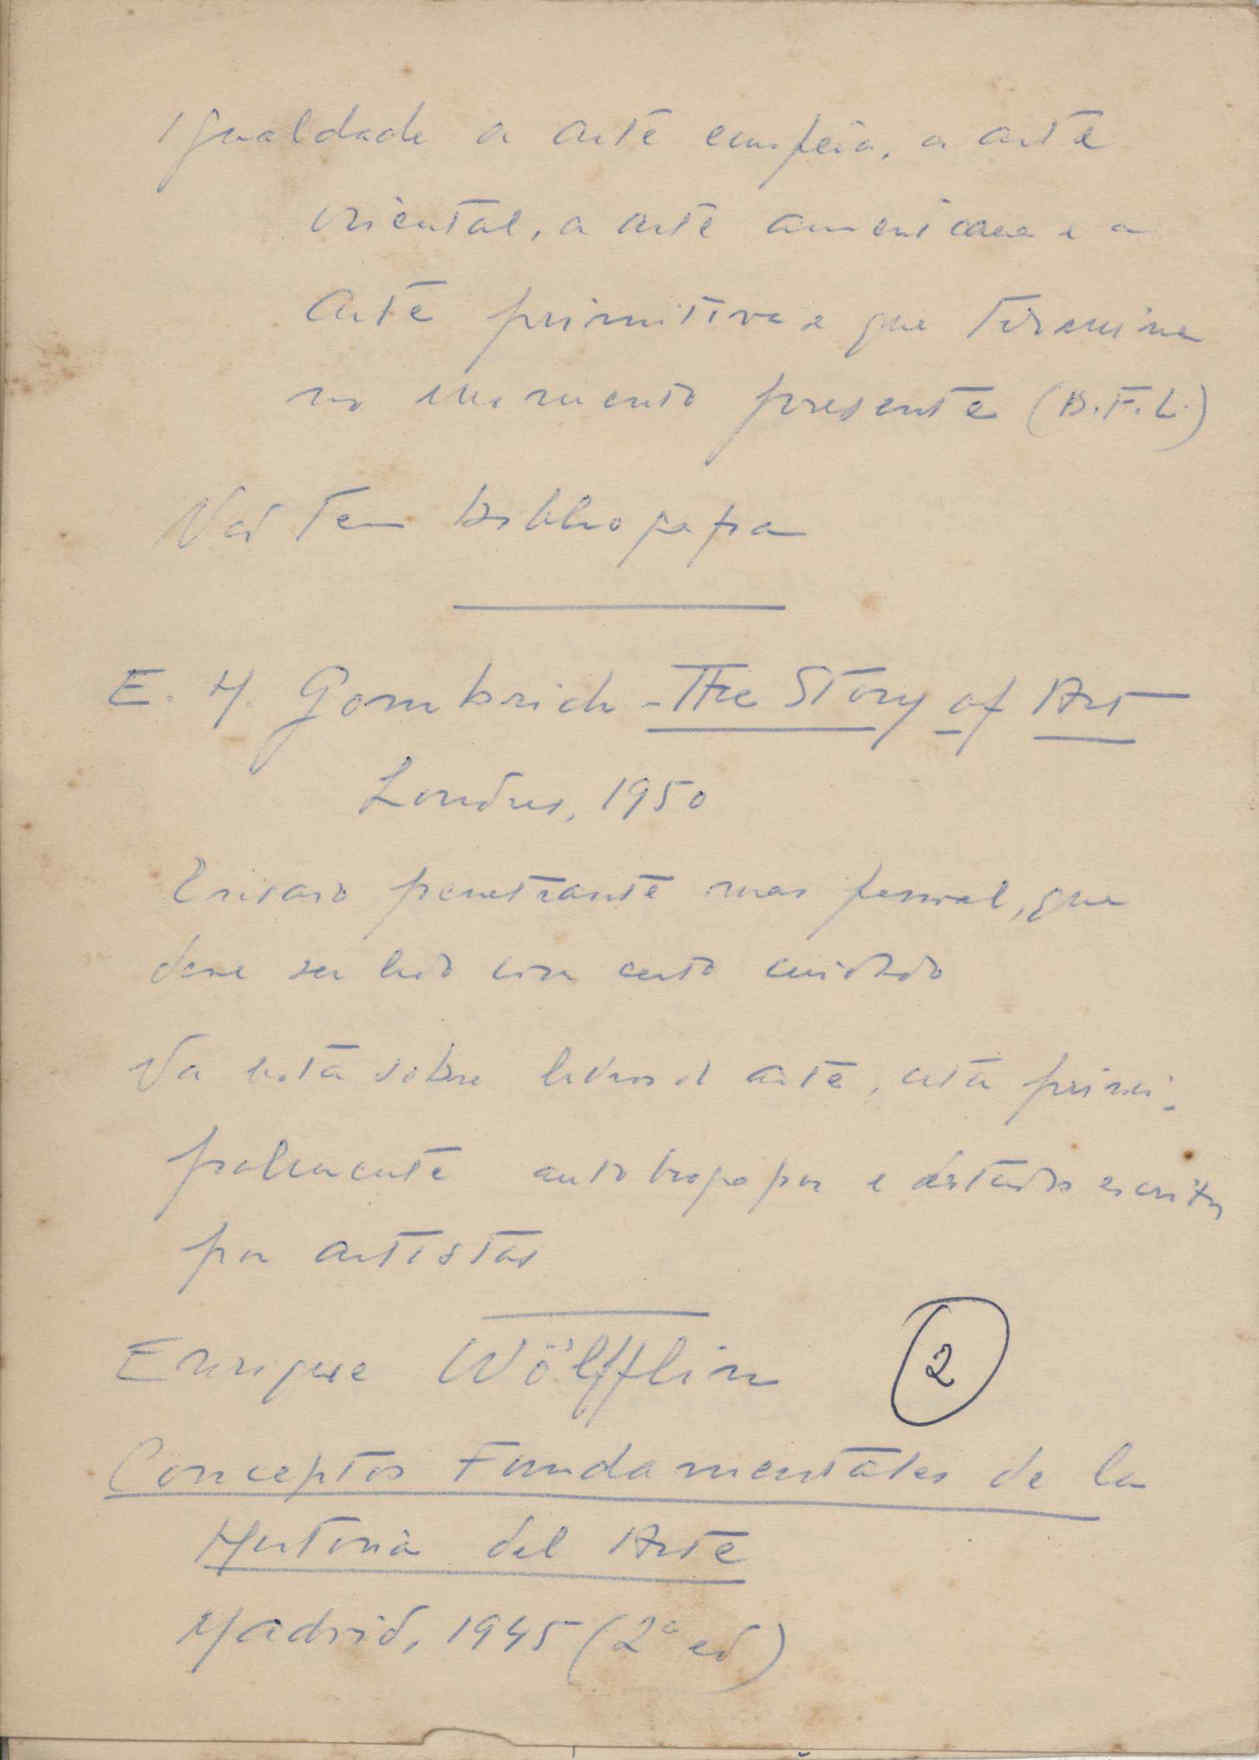 igualdade a arte européia, a arte
oriental, a arte americana e a
arte primitiva e que termina
no momento presente (B.F.L.)
Não tem bibliografia
E. H. Gombrich - The Story of Art
Londres, 1950
Ensaio penetrante mas pessoal, que
deve ser lido com certo cuidado
Na lista sobre livros de arte, cita princi-
palmente autobiografias e escritos
por artistas
Enrique Wölfflin
2
Conceptos Fundamentales de la
Historia del Arte
Madrid, 1945 (2ª ed)